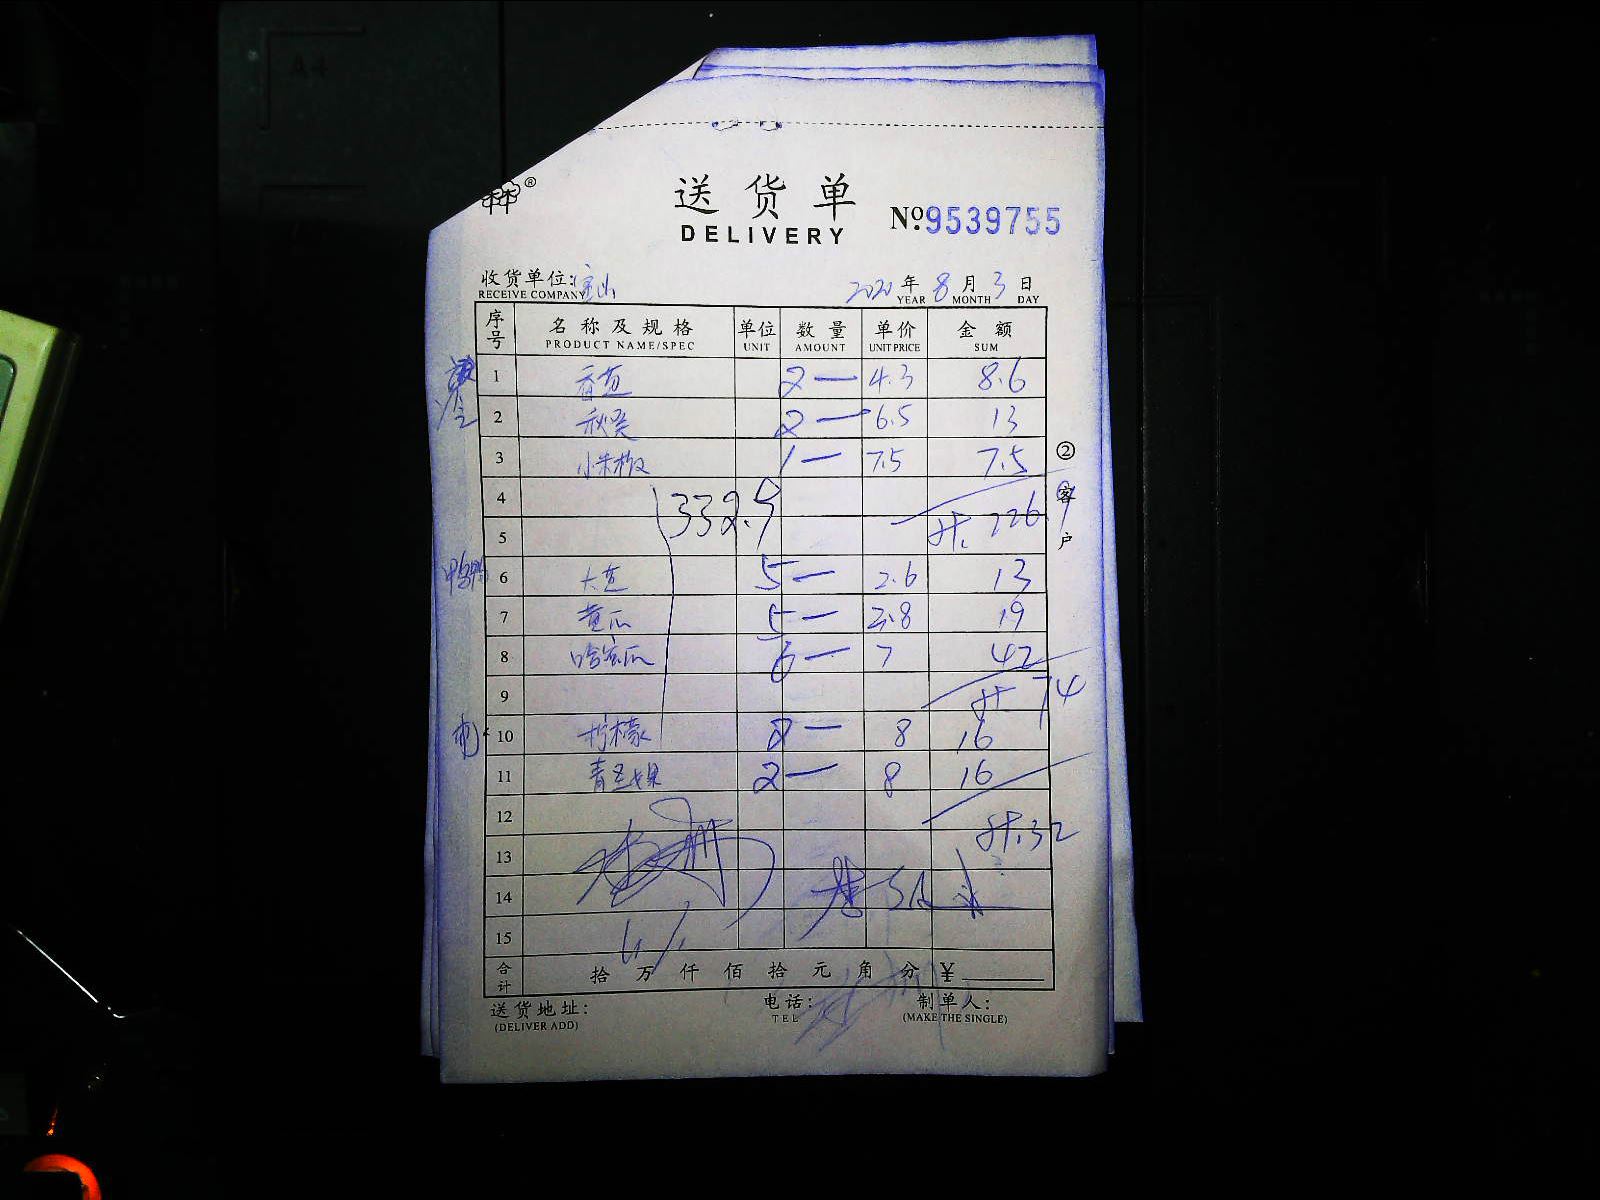 A4
®
送货单
DELIVERY
№:9539755
收货单位:宝山
RECEIVE COMPANY
2020年8月3日
YEAR MONTH DAY
序号 名称及规格 单位 数量 单价 金额
PRODUCT NAME/SPEC UNIT AMOUNT UNIT PRICE SUM
1 香芹 2 — 4.3 8.6
2 秋葵 2 — 6.5 13
3 小米椒 1 — 7.5 7.5
4 332.9
5 计. 226.9
6 大 5 — 2.6 13
7 黄瓜 5 — 3.8 19
8 哈密瓜 6 — 7 42
9 计 74
10 柠檬 2 — 8 16
11 青 2 — 8 16
12 计.32
13
14
15
合计 拾万仟佰拾元角分 ¥
②客户
送货地址: 电话: 制单人:
(DELIVER ADD) TEL (MAKE THE SINGLE)